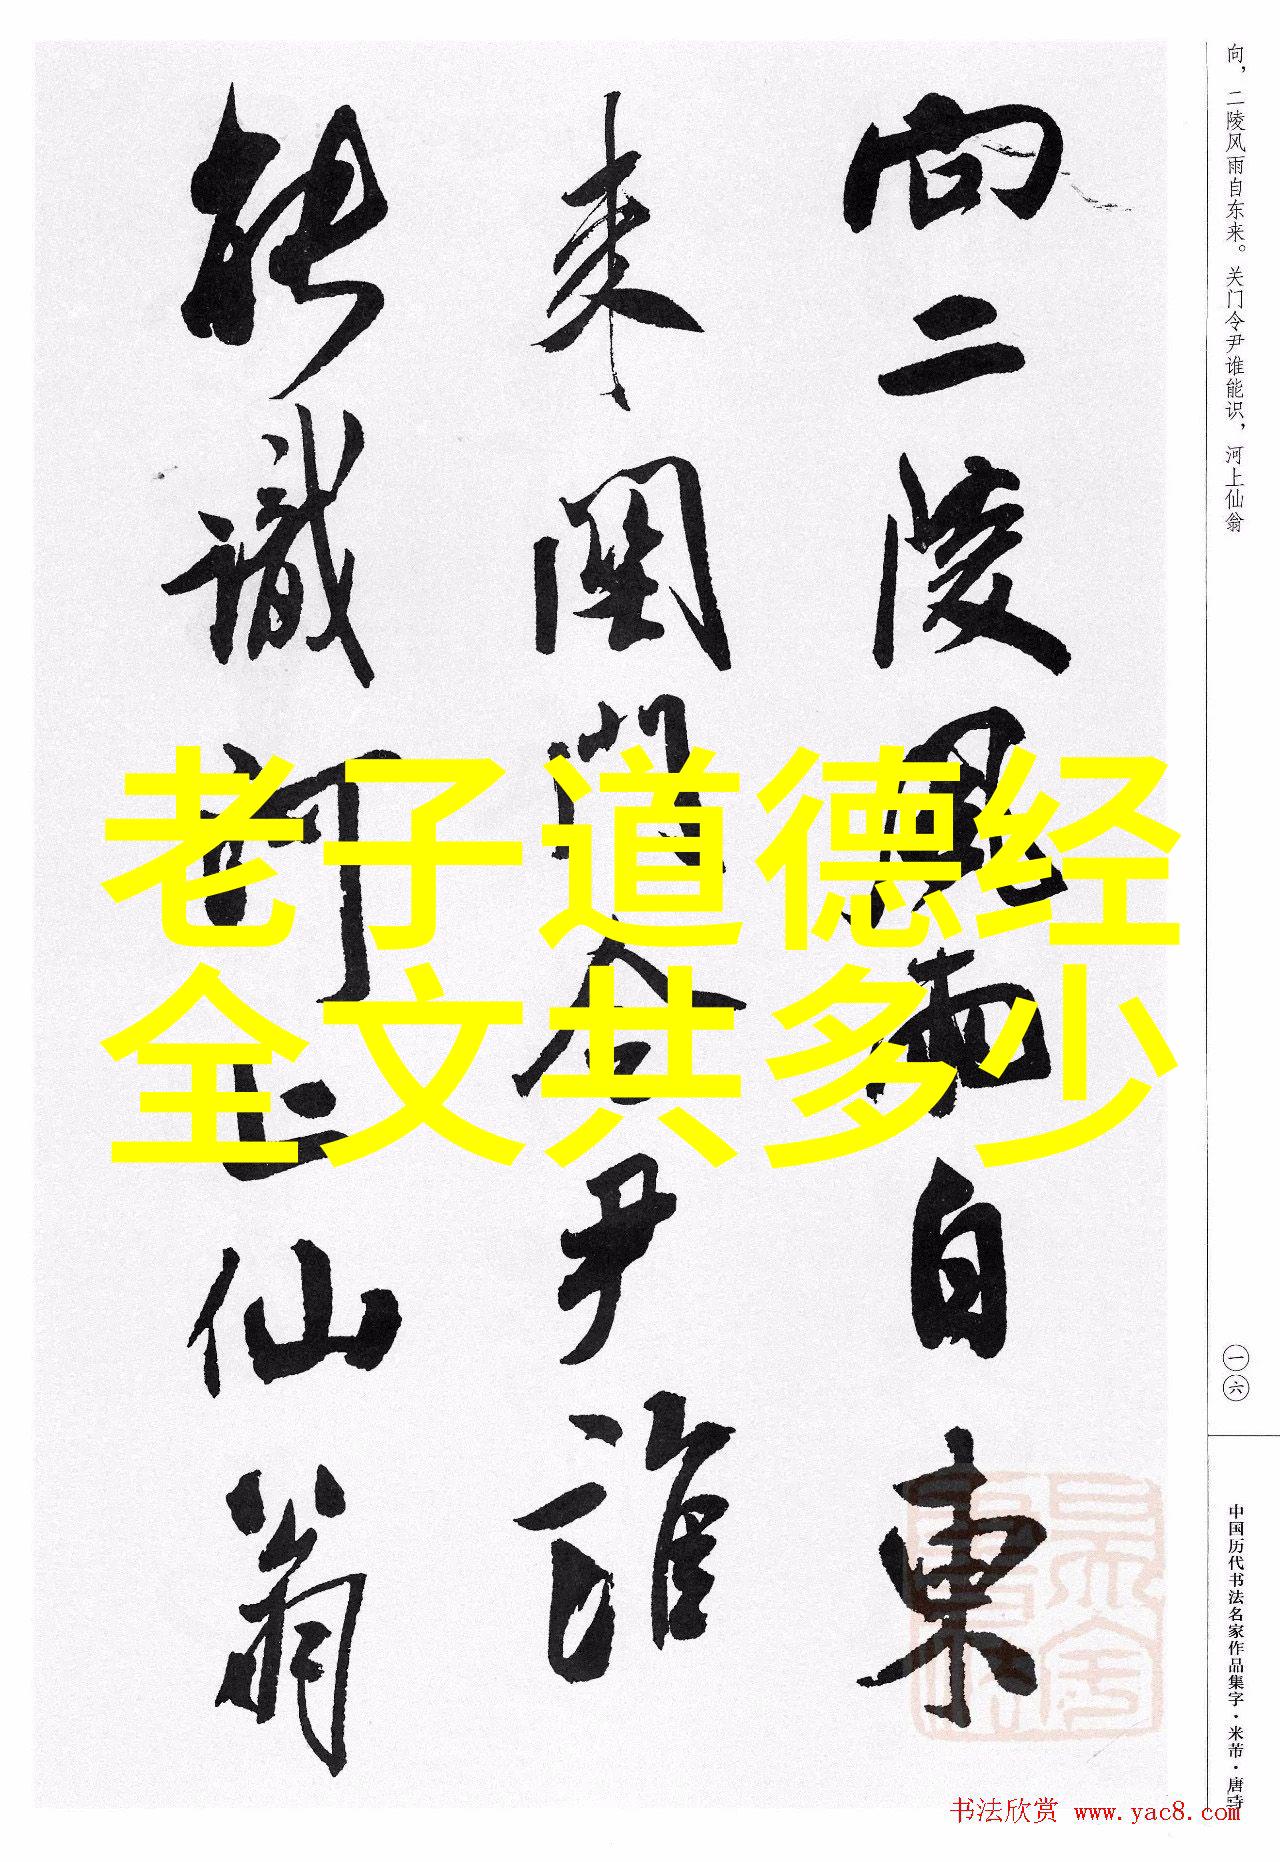 向二陵風雨自東
来關門令尹誰
能識河上仙翁
老子道德经
全文共多少
向，二陵风雨自东来。关门令尹谁能识，河上仙翁
一六
中国历代书法名家作品集字·米芾·唐诗
书法欣赏 www.yac8.com